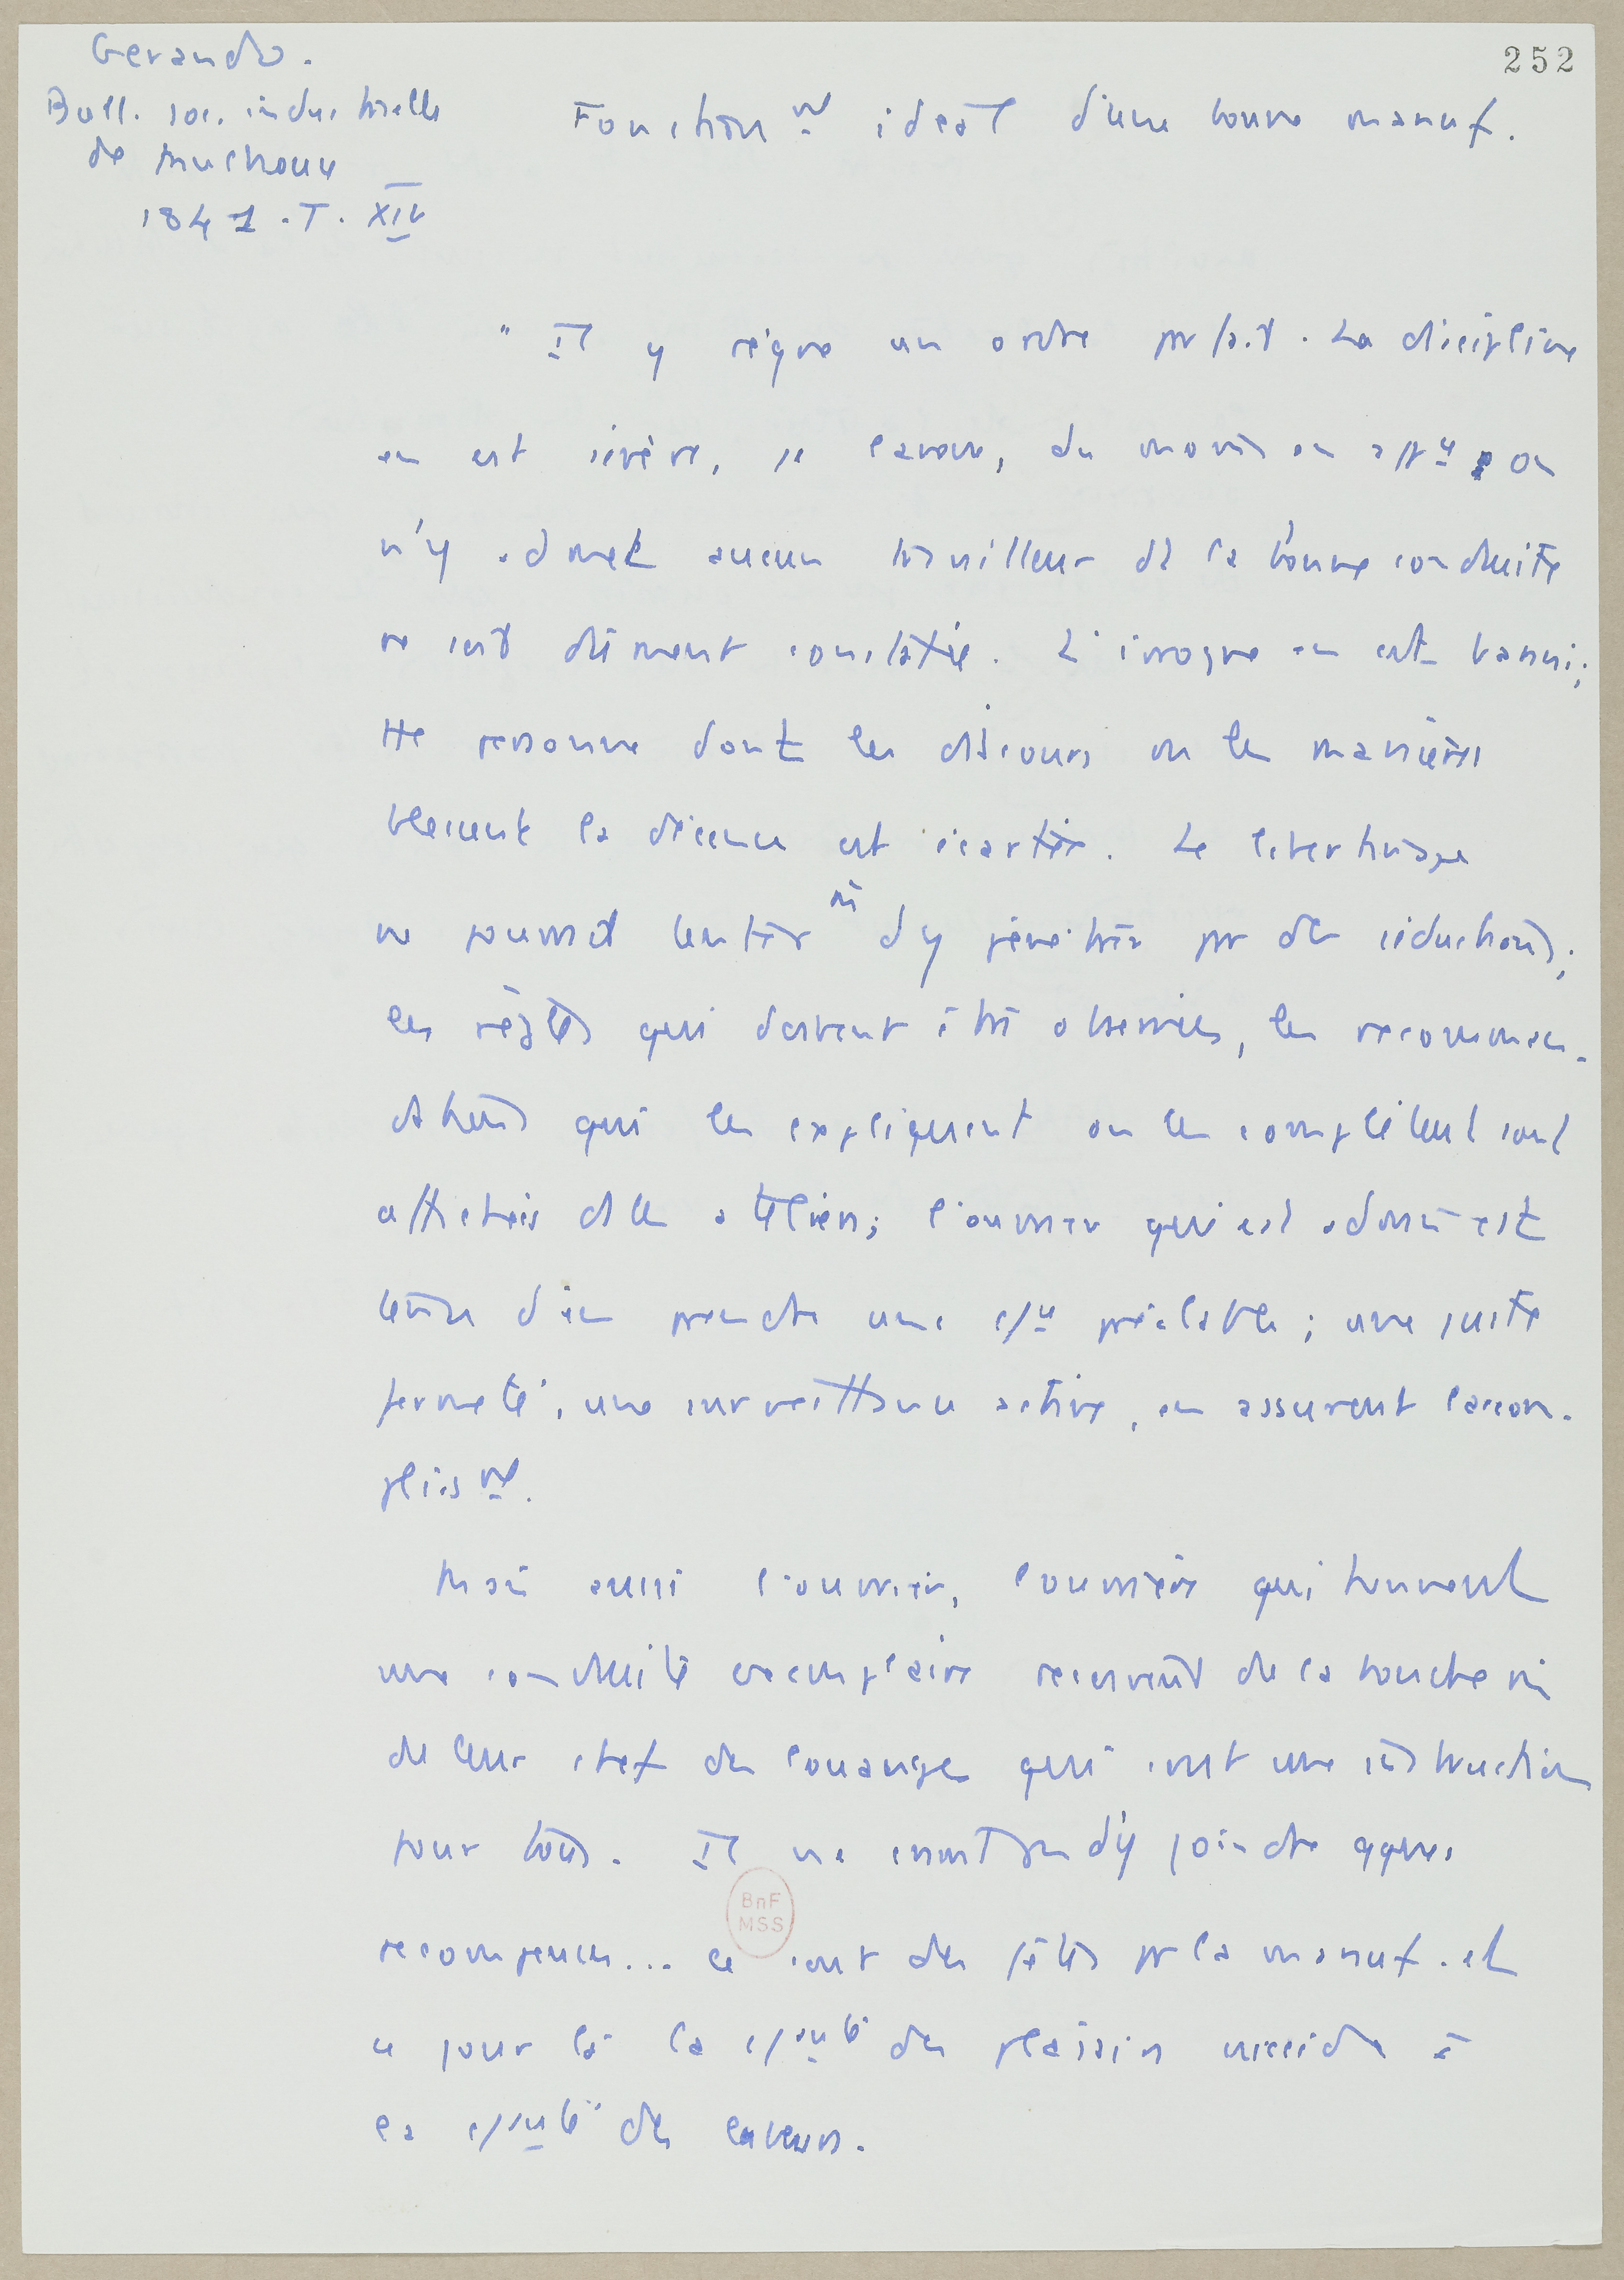 252
Gerando.
Bull. soc. industrielle
de Mulhouse
1841. T. XIV
Fonction^nt idéal d'une bonne manuf.
"Il y règne un ordre parfait. La discipline
en est sévère, je l'avoue, du moins en app^ce on
n'y admet aucun travailleur dt la bonne conduite
ne soit dûment constatée. L'ivrogne en est banni;
tte personne dont les discours ou les manières
blessent la décence est écartée. Le libertinage
ne pourrait tenter ni d'y pénétrer par des séductions;
les règles qui doivent être observées, les recomman-
dations qui les expliquent ou les complètent sont
affichées ds les ateliers; l'ouvrier qui est admis est
tenu d'en prendre une c/ce préalable; une juste
fermeté, une surveillance active, en assurent l'accom-
pliss^nt.
Mais aussi l'ouvrier, l'ouvrière qui tiennent
une conduite exemplaire reçoivent de la bouche m
de leur chef des louanges qui sont une instruction
pour tous. Il ne craint pas d'y joindre qques
récompenses... ce sont des fêtes pr la manuf. et
ce jour là la c/auté des plaisirs succède à
la c/auté des labeurs.
BnF
MSS